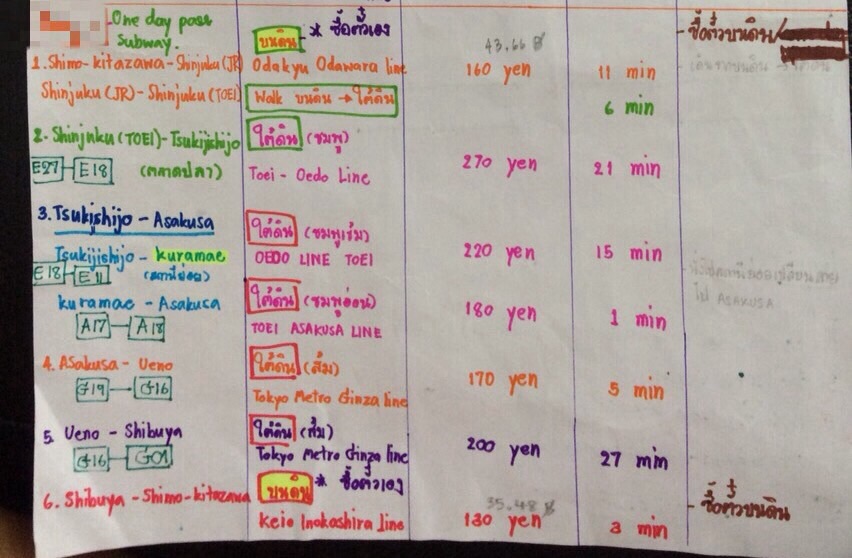 One day pass
Subway.
บนดิน * ซื้อตั๋วเอง
43.66 ฿
- ซื้อตั๋วบนดิน/
1. Shimo-kitazawa - Shinjuku (JR) Odakyu Odawara line 160 yen 11 min
Shinjuku (JR) - Shinjuku (TOEI) Walk บนดิน → ใต้ดิน 6 min
2. Shinjuku (TOEI) - Tsukijishijo ใต้ดิน (ชมพู)
E27 E18 (ตลาดปลา) Toei - Oedo Line 270 yen 21 min
3. Tsukishijo - Asakusa ใต้ดิน (ชมพูเข้ม)
Tsukijishijo - kuramae OEDO LINE TOEI 220 yen 15 min
E18 E11 (สถานีย่อย)
ใต้ดิน (ชมพูอ่อน)
ไป ASAKUSA
kuramae - Asakusa 180 yen 1 min
A17 A18 TOEI ASAKUSA LINE
4. Asakusa - Ueno ใต้ดิน (ส้ม)
G19 → G16 Tokyo Metro Ginza line 170 yen 5 min
5. Ueno - Shibuya ใต้ดิน (ส้ม)
G16 G01 Tokyo Metro Ginza line 200 yen 27 min
6. Shibuya - Shimo-kitazawa บนดิน * ซื้อตั๋วเอง
35.48 ฿
- ซื้อตั๋วบนดิน
Keio Inokashira line 130 yen 3 min